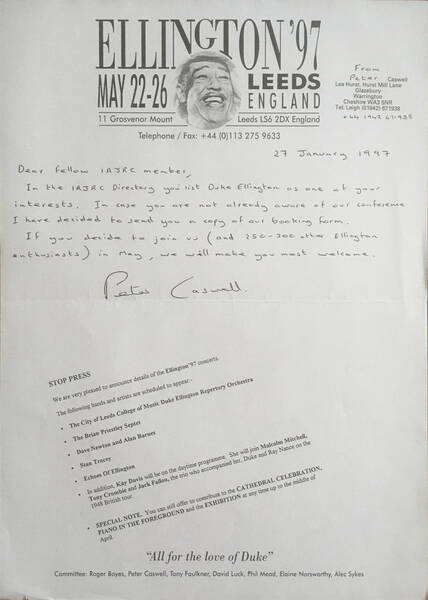 ELLINGTON '97
MAY 22-26
LEEDS
ENGLAND
11 Grosvenor Mount
Leeds LS6 2DX England
Telephone / Fax: +44 (0)113 275 9633
From
Peter Caswell
Lea Hurst, Hurst Mill Lane
Glazebury
Warrington
Cheshire WA3 5NR
Tel: Leigh (01942) 671938
+44 1942 671938
27 January 1997
Dear fellow IAJRC member,
In the IAJRC Directory you list Duke Ellington as one of your
interests. In case you are not already aware of our conference
I have decided to send you a copy of our booking form.
If you decide to join us (and 250-300 other Ellington
enthusiasts) in May, we will make you most welcome.
Peter Caswell.
STOP PRESS
We are very pleased to announce details of the Ellington'97 concerts.
The following bands and artists are scheduled to appear:-
• The City of Leeds College of Music Duke Ellington Repertory Orchestra
• The Brian Priestley Septet
• Dave Newton and Alan Barnes
• Stan Tracey
• Echoes Of Ellington
• In addition, Kay Davis will be on the daytime programme. She will join Malcolm Mitchell,
Tony Crombie and Jack Fallon, the trio who accompanied her, Duke and Ray Nance on the
1948 British tour.
• SPECIAL NOTE. You can still offer to contribute to the CATHEDRAL CELEBRATION,
PIANO IN THE FOREGROUND and the EXHIBITION at any time up to the middle of
April.
"All for the love of Duke"
Committee: Roger Boyes, Peter Caswell, Tony Faulkner, David Luck, Phil Mead, Elaine Norsworthy, Alec Sykes